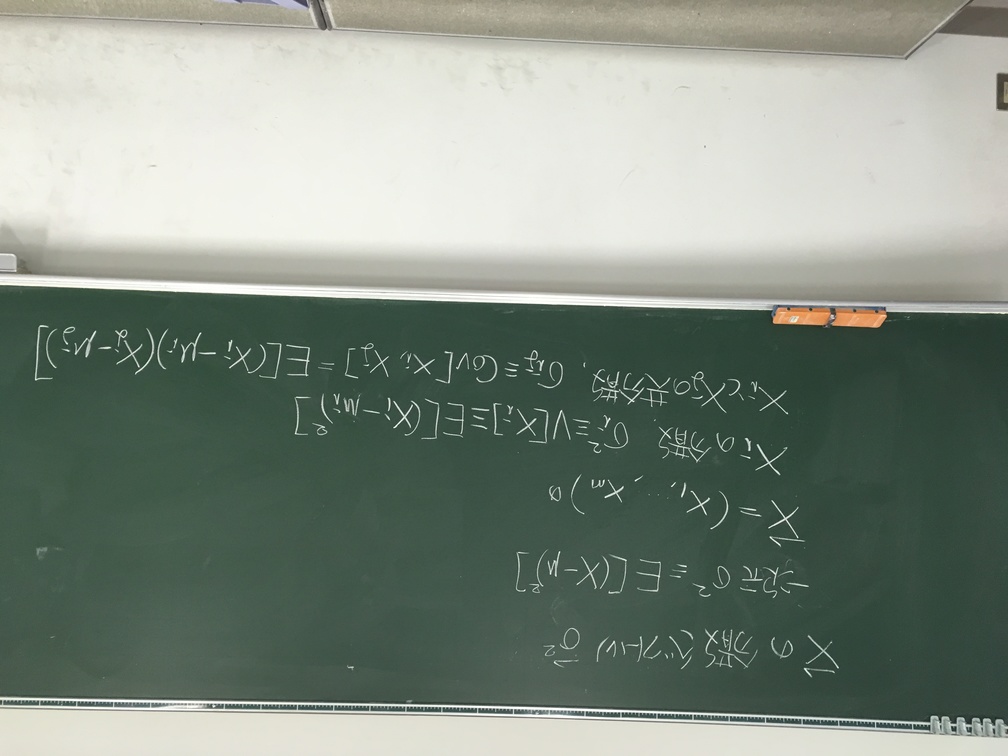 X⃗の分散(ベクトル) σ⃗²
一次元 σ² ≡ E[(X-μ)²]
X⃗ = (X₁, …, Xₘ)の
Xᵢの分散, σᵢ² ≡ V[Xᵢ] ≡ E[(Xᵢ-μᵢ)²]
XᵢとXⱼの共分散, σᵢⱼ ≡ Cov[Xᵢ, Xⱼ] = E[(Xᵢ-μᵢ)(Xⱼ-μⱼ)]